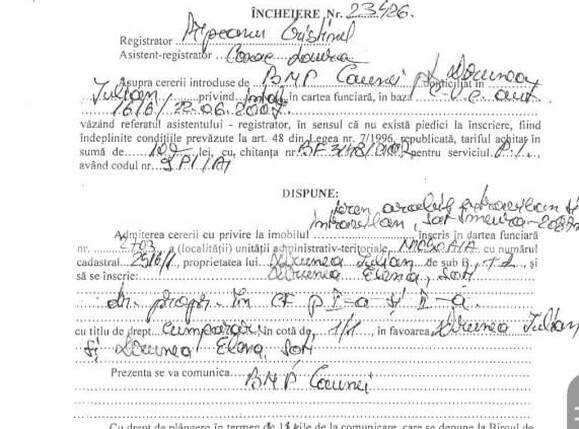 ÎNCHEIERE Nr. 23426.
Registrator Cristinel
Asistent-registrator
Asupra cererii introduse de BNP Caunei pt domiciliat în
Iulian privind în cartea funciară, în baza C.V.C. aut
1616/22.06.2007,
văzând referatul asistentului - registrator, în sensul că nu există piedici la înscriere, fiind
îndeplinite condițiile prevăzute la art. 48 din Legea nr. 7/1996, republicată, tariful achitat în
sumă de lei, cu chitanța nr. pentru serviciul P.I.,
având codul nr.
DISPUNE:
teren arabil extravilan și
intravilan, sat
Admiterea cererii cu privire la imobilul înscris în cartea funciară
nr. 2703 a (localității) unității administrativ-teritoriale cu numărul
cadastral 2516/1, proprietatea lui Iulian de sub și
să se înscrie: Elena, soți
dr. propr. în CF p I-a și II-a.
cu titlu de drept cumpărare în cotă de 1/1, în favoarea Iulian
și Elena, soți
Prezenta se va comunica BNP Caunei
Cu drept de plângere în termen de 15 zile de la comunicare, care se depune la Biroul de